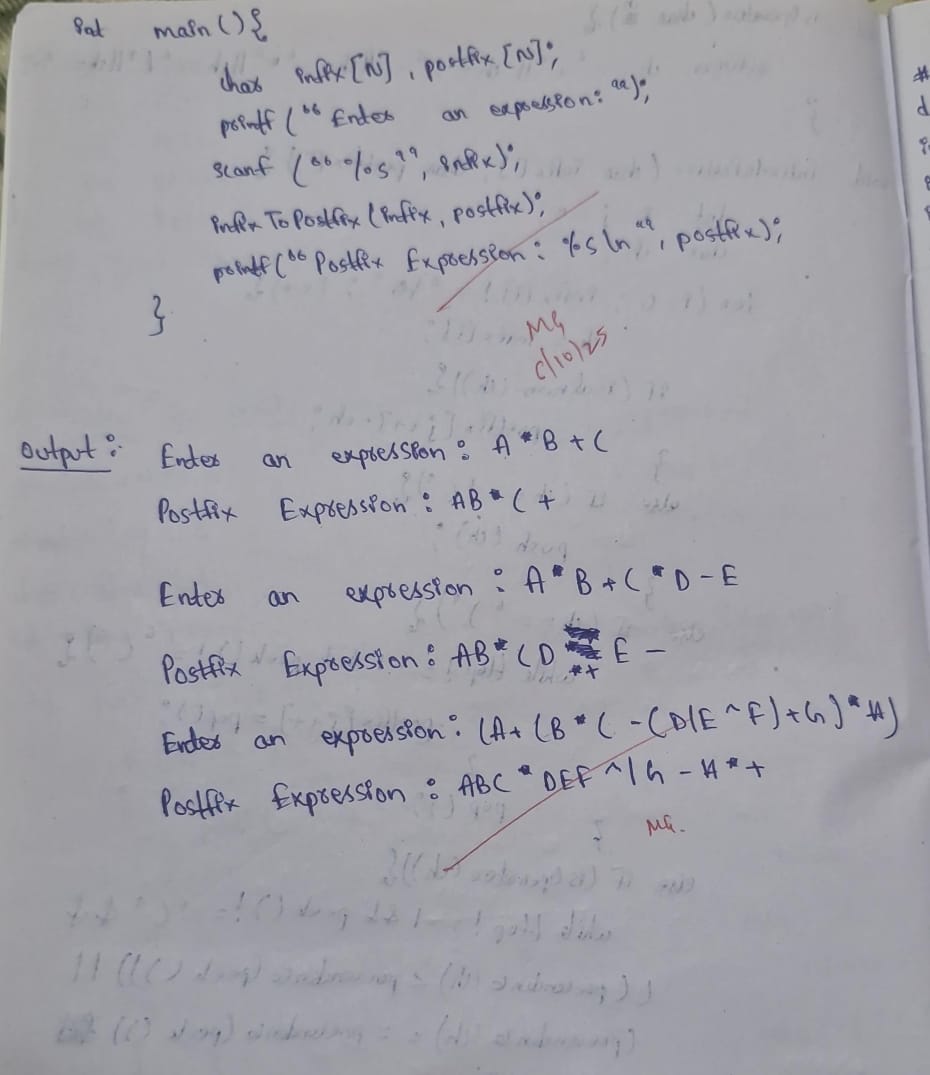 int main(){
char infix[N], postfix[N];
printf("Enter an expression: ");
scanf("%s", infix);
infixToPostfix(infix, postfix);
printf("Postfix Expression: %s\n", postfix);
}
MG
Output:
Enter an expression: A*B+C
Postfix Expression: AB*C+
Enter an expression: A*B+C*D-E
Postfix Expression: AB*CD*+E-
Enter an expression: (A+(B*C-(D/E^F)+G)*H)
Postfix Expression: ABC*DEF^/G-H*+
MG.